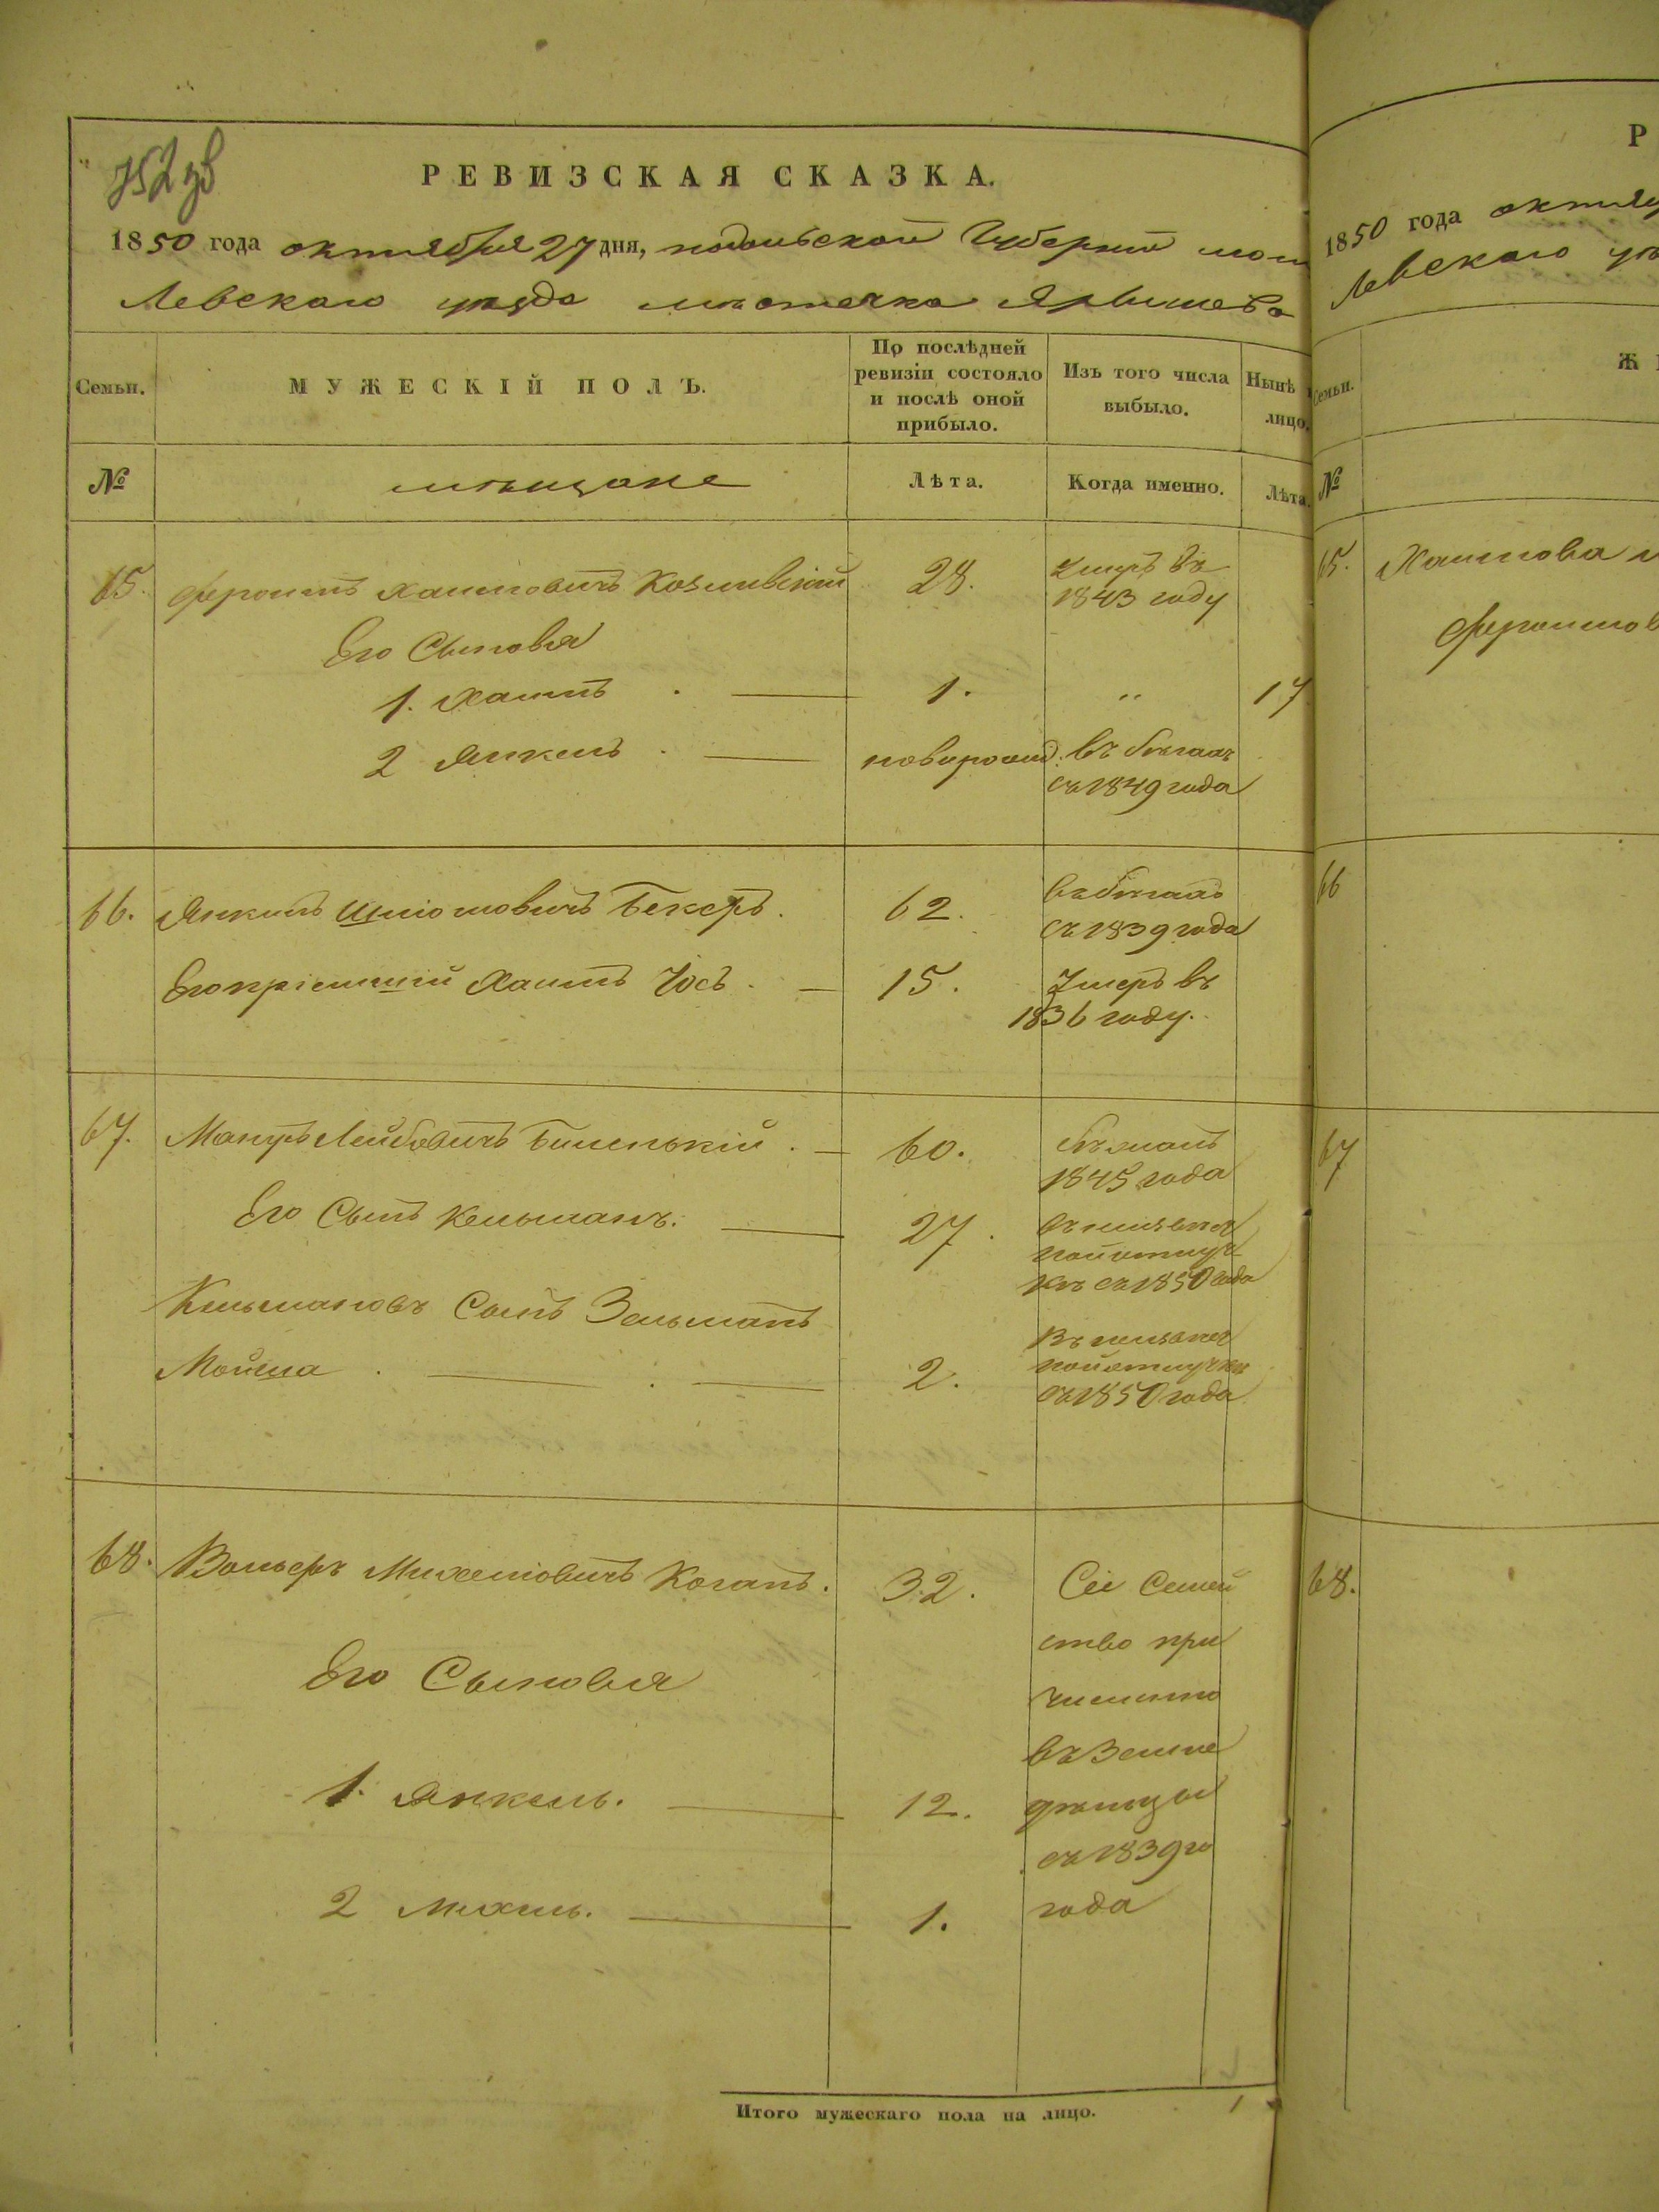 752 зв
РЕВИЗСКАЯ СКАЗКА.
1850 года октября 27 дня, подольской Губернии мог
левскаго уезда местечка Ярышева
Семьи.
МУЖЕСКІЙ ПОЛЪ.
По послѣдней
ревизіи состояло
и послѣ оной
прибыло.
Изъ того числа
выбыло.
Нынѣ
лицо.
№
мѣщане
Лѣта.
Когда именно.
Лѣта.
65. Хаимовичъ 28. Умеръ въ
1843 году
Его Сыновья
1. Хаимъ 1. 17
2 Янкель новорожд. въ бѣгахъ
съ 1849 года
66. Янкель Шліомовичъ Бекеръ. 62. въ бѣгахъ
съ 1839 года
Его пріемшій Хаимъ Іосъ. 15. Умеръ въ
1836 году.
67. Лейбовичъ Биленькій. 60.
1845 года
Его Сынъ Кельманъ. 27.
съ 1850 года
Кельмановъ Сынъ Зельманъ
Мойша 2.
съ 1850 года
68. Вольфъ Михелювичъ Коганъ. 32. Сіе Семей
ство при
Его Сыновья
числено
въ Земле
1. Янкель. 12. дельцы
съ 1839 го
2 Михель. 1. года
Итого мужескаго пола на лицо. 1
Р
1850 года октяб
левскаго уе
Семьи.
Ж
№
65. Хаимова
66
67
68.